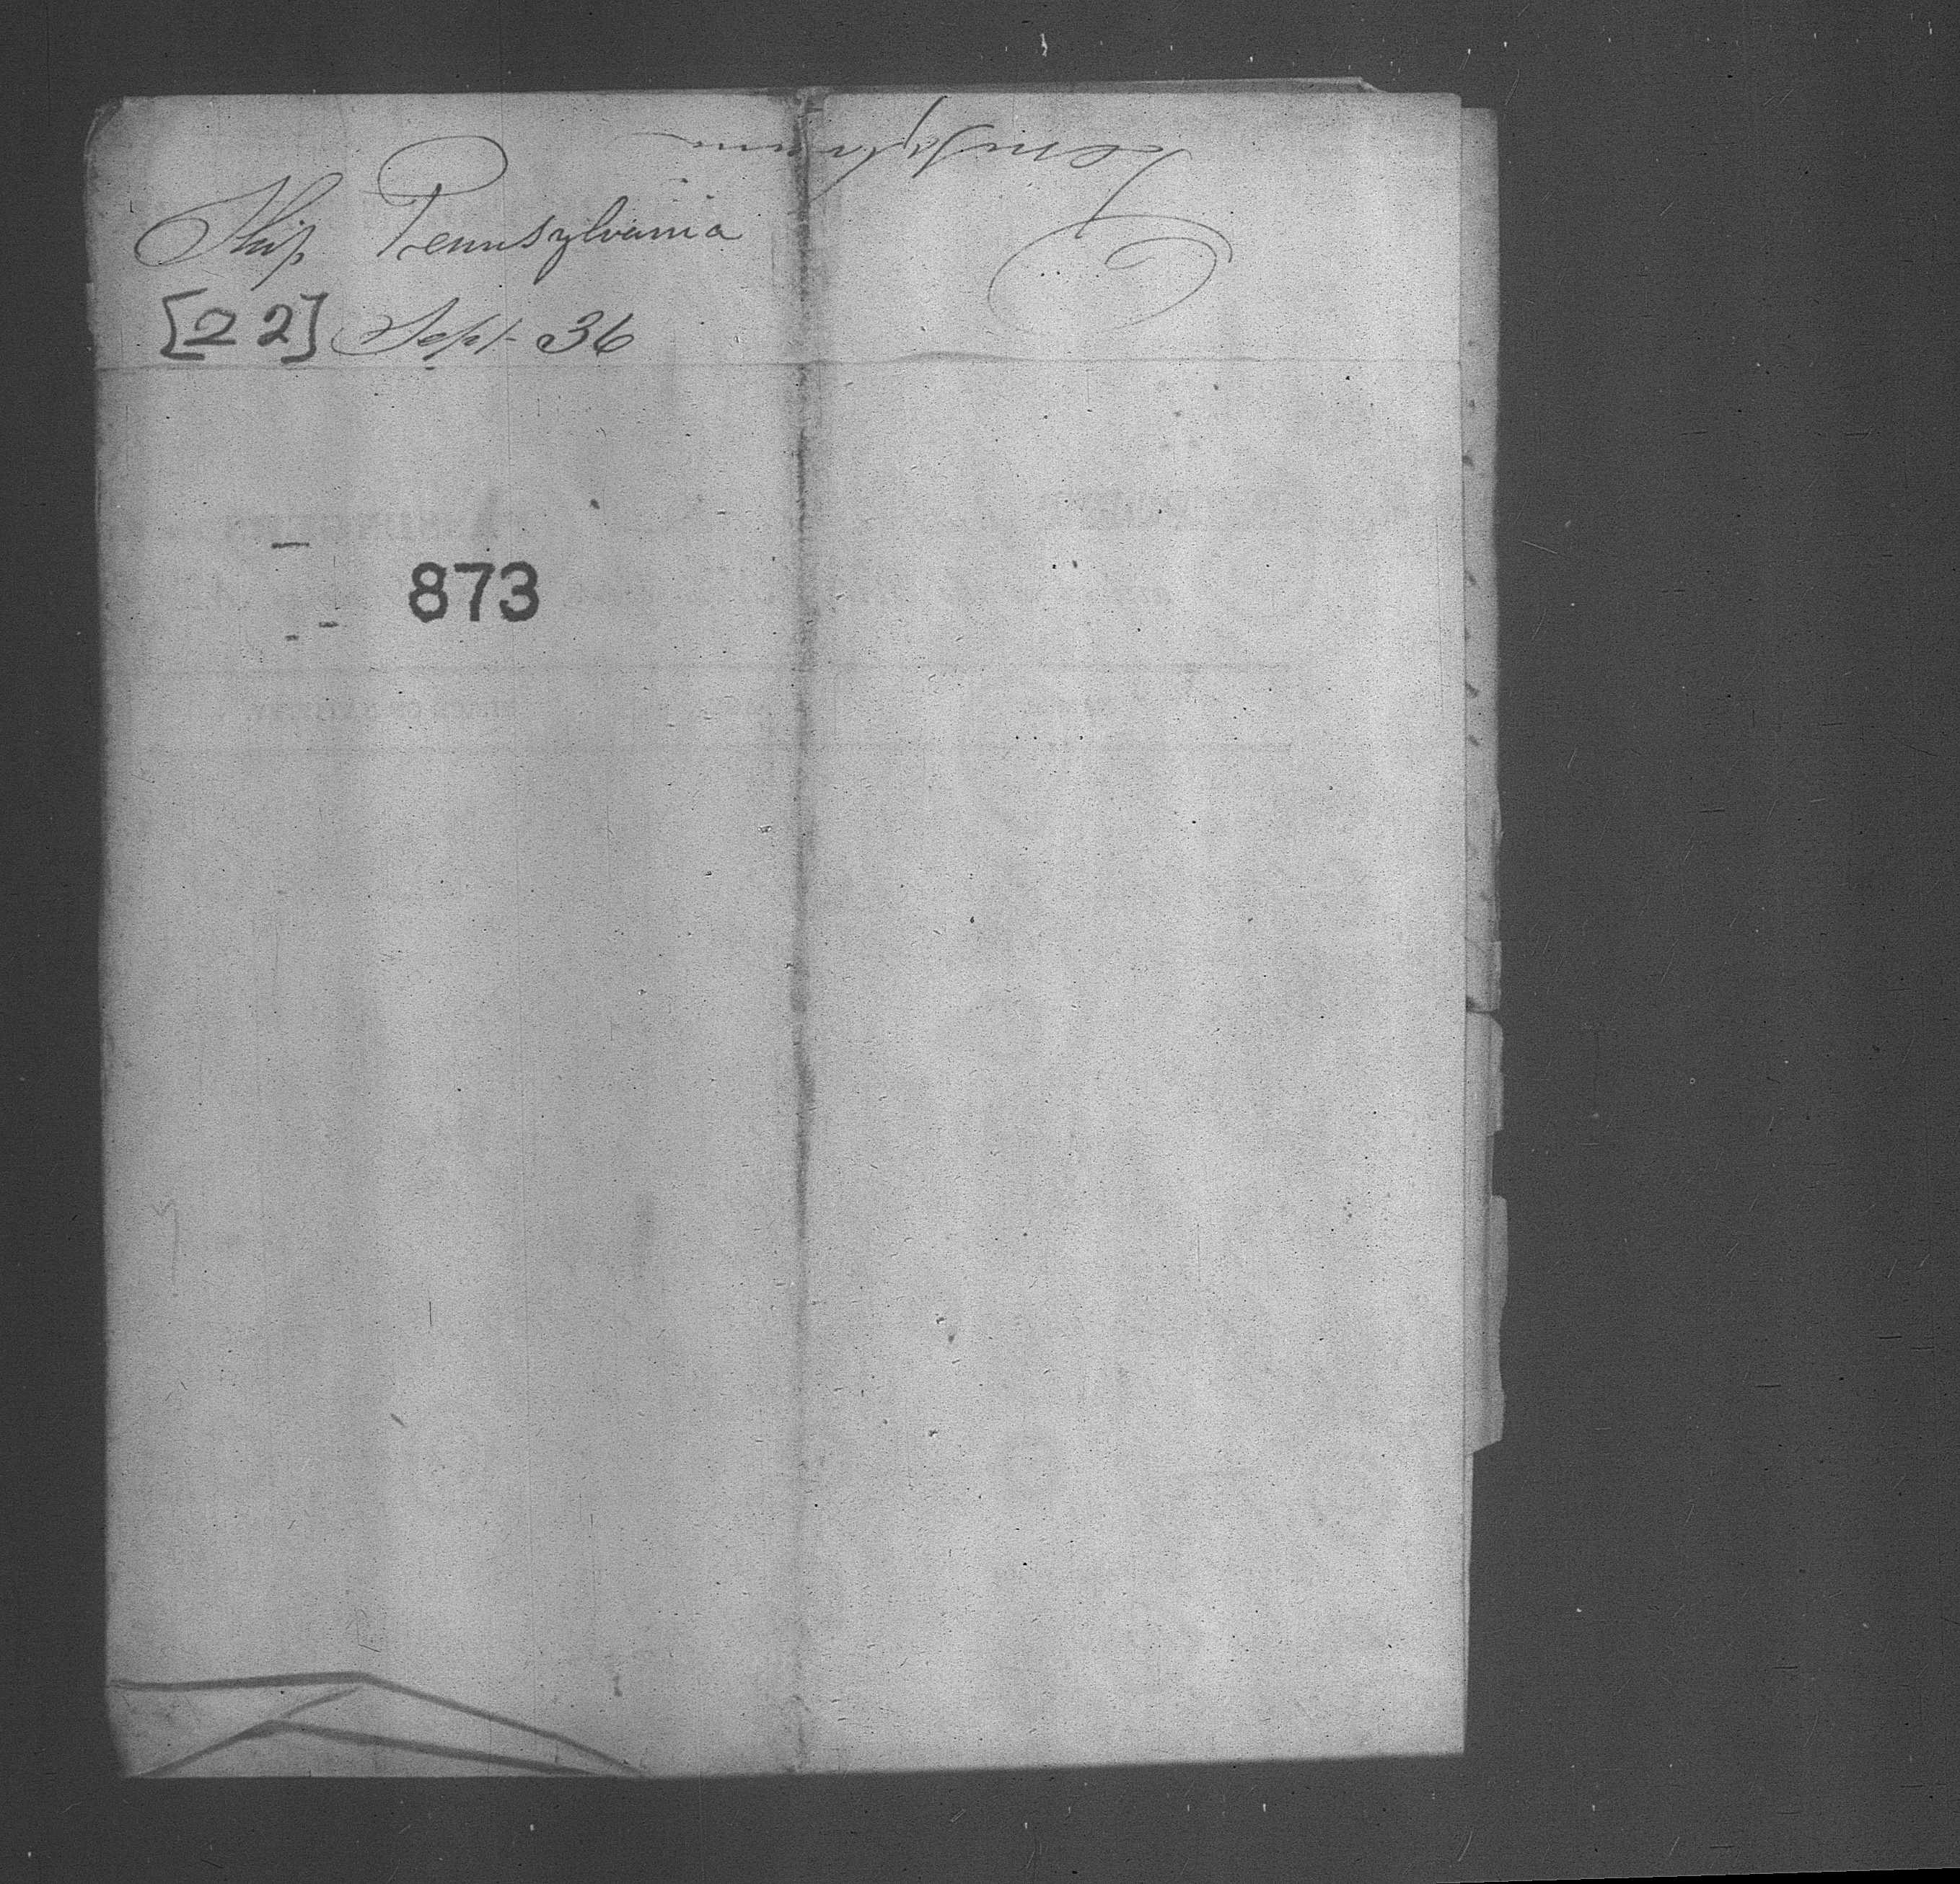 Ship Pennsylvania
[22] Sept 36
873
Pennsylvania